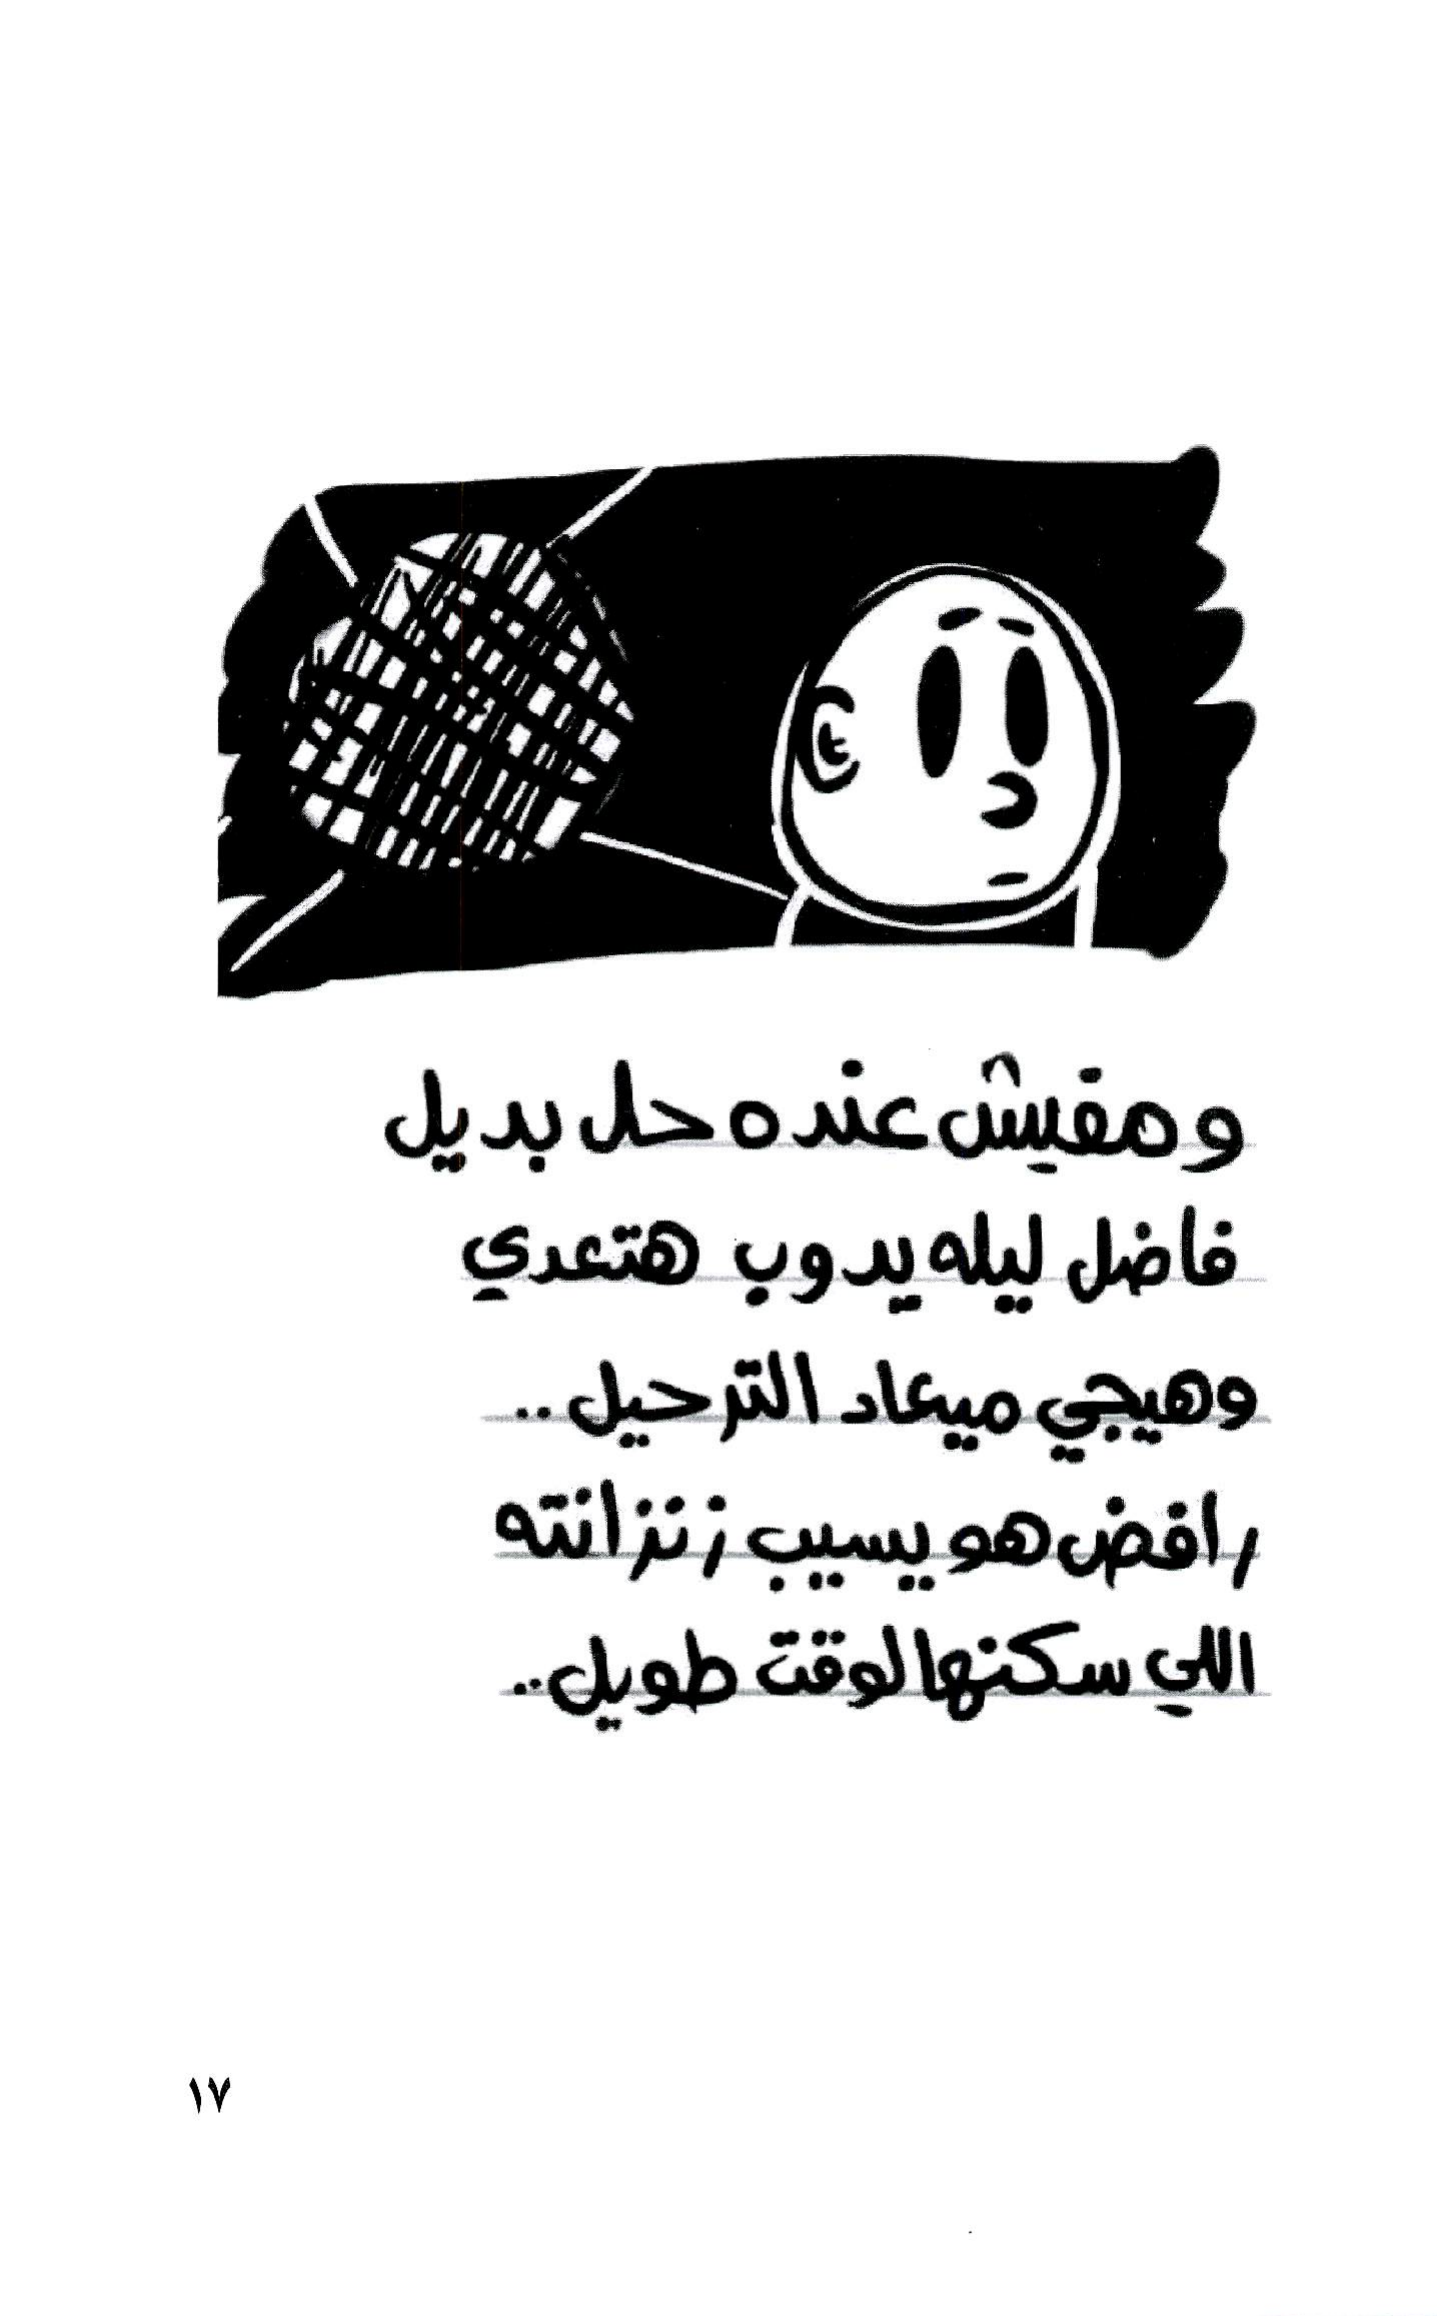 ومفيش عنده حل بديل
فاضل ليله يدوب هتعدي
وهيجي ميعاد الترحيل..
رافض هو يسيب زنزانته
اللي سكنها لوقت طويل..
١٧